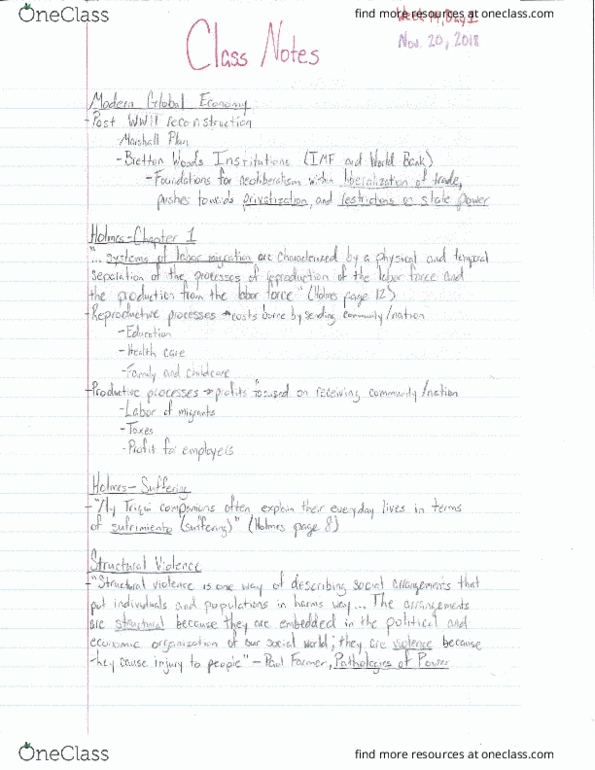 OneClass
find more resources at oneclass.com
Nov. 20, 2018
Class Notes
Modern Global Economy
-Post WWII reconstruction
-Marshall Plan
-Bretton Woods Institutions (IMF and World Bank)
-Foundations for neoliberalism within liberalization of trade,
pushes towards privatization, and restrictions on state power
Holmes-Chapter 1
"... systems of labor migration are characterized by a physical and temporal
separation of the processes of reproduction of the labor force and
the production from the labor force" (Holmes page 12)
-Reproductive processes → costs borne by sending community/nation
-Education
-Health care
-Family and childcare
-Productive processes → profits focused on receiving community/nation
-Labor of migrants
-Taxes
-Profit for employers
Holmes-Suffering
-"My Triqui companions often explain their everyday lives in terms
of sufrimiento (suffering)" (Holmes page 8)
Structural Violence
-"Structural violence is one way of describing social arrangements that
put individuals and populations in harms way... The arrangements
are structural because they are embedded in the political and
economic organization of our social world; they are violence because
they cause injury to people" - Paul Farmer, Pathologies of Power
OneClass
find more resources at oneclass.com